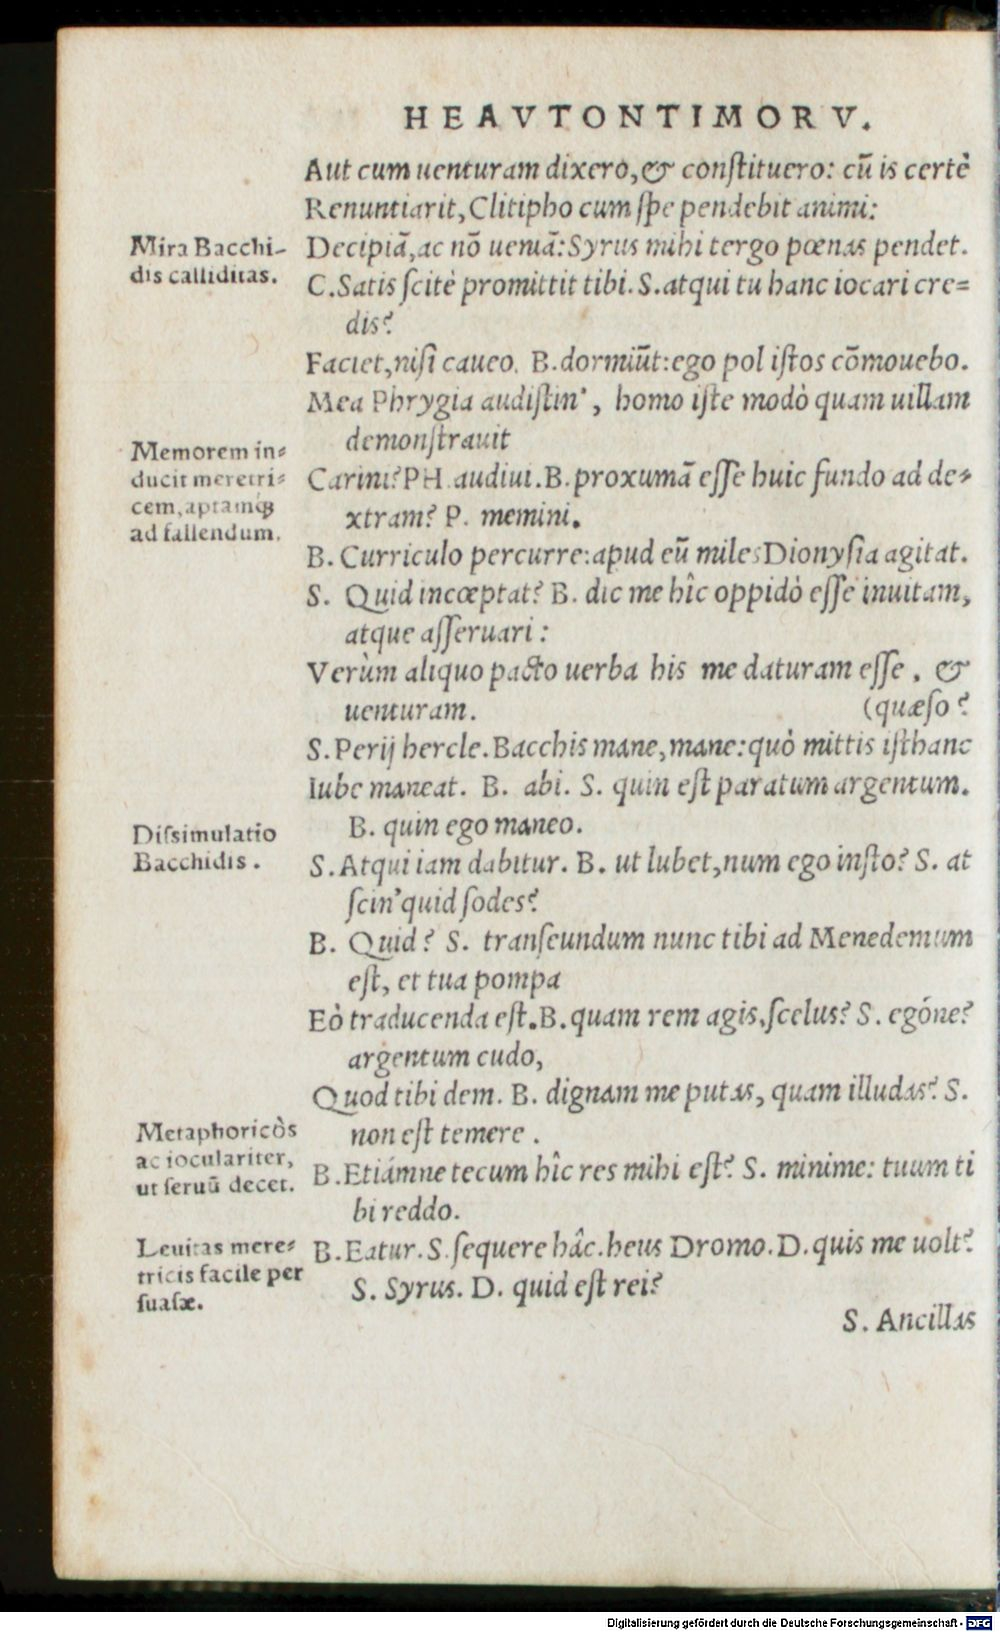 HEAVTONTIMORV.
Aut cum uenturam dixero, & conſtituero: cū is certè
Renuntiarit, Clitipho cum ſpe pendebit animi:
Mira Bacchi-
dis calliditas.
Decipiā, ac nō ueniā: Syrus mihi tergo pœnas pendet.
C. Satis ſcitè promittit tibi. S. atqui tu hanc iocari cre=
dis?
Faciet, niſi caueo. B. dormiūt: ego pol iſtos cōmouebo.
Mea Phrygia audiſtin', homo iſte modò quam uillam
demonſtrauit
Memorem in=
ducit meretri=
cem, aptamq́;
ad fallendum.
Carini? PH. audiui. B. proxumā eſſe huic fundo ad de=
xtram? P. memini.
B. Curriculo percurre: apud eū miles Dionyſia agitat.
S. Quid incœptat? B. dic me hîc oppidò eſſe inuitam,
atque aſſeruari:
Verùm aliquo pacto uerba his me daturam eſſe, &
uenturam. (quæſo?
S. Perij hercle. Bacchis mane, mane: quò mittis iſthanc
Iube maneat. B. abi. S. quin eſt paratum argentum.
B. quin ego maneo.
Diſsimulatio
Bacchidis.
S. Atqui iam dabitur. B. ut lubet, num ego inſto? S. at
ſcin' quid ſodes?
B. Quid? S. tranſeundum nunc tibi ad Menedemum
eſt, et tua pompa
Eò traducenda eſt. B. quam rem agis, ſcelus? S. egóne?
argentum cudo,
Quod tibi dem. B. dignam me putas, quam illudas? S.
non eſt temere.
Metaphoricῶs
ac ioculariter,
ut ſeruū decet.
B. Etiámne tecum hîc res mihi eſt? S. minime: tuum ti
bi reddo.
Leuitas mere=
tricis facile per
ſuaſæ.
B. Eatur. S. ſequere hâc. heus Dromo. D. quis me uolt?
S. Syrus. D. quid eſt rei?
S. Ancillas
Digitalisierung gefördert durch die Deutsche Forschungsgemeinschaft - DFG